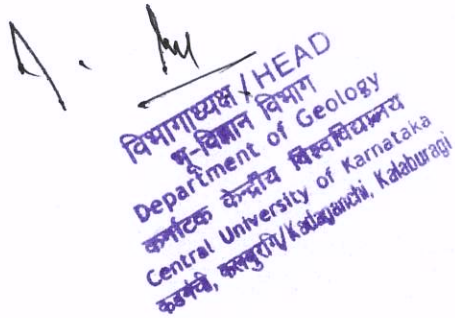 विभागाध्यक्ष / HEAD
भू-विज्ञान विभाग
Department of Geology
कर्नाटक केन्द्रीय विश्वविद्यालय
Central University of Karnataka
कडगंची, कलबुरगि/Kadaganchi, Kalaburagi